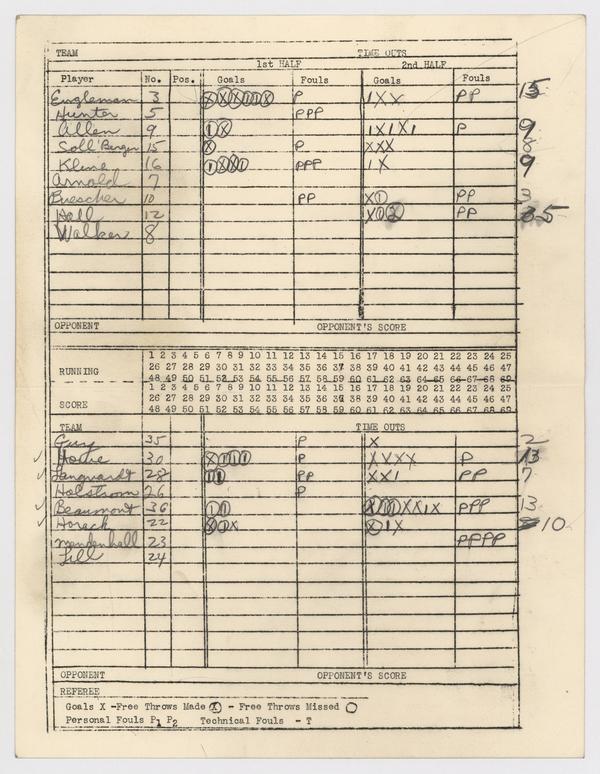 TEAM TIME OUTS
1st HALF 2nd HALF
Player No. Pos. Goals Fouls Goals Fouls
Engleman 3 P I X X P P 15
Hunter 5 P P P
Allen 9 I X I X I X I P 9
Soll Berger 15 X P X X X 8
Kline 16 P P P I X 9
Arnold 7
Buescher 10 P P X I P P 3
Hall 12 P P 5
Walker 8
OPPONENT OPPONENT'S SCORE
1 2 3 4 5 6 7 8 9 10 11 12 13 14 15 16 17 18 19 20 21 22 23 24 25
RUNNING 26 27 28 29 30 31 32 33 34 35 36 37 38 39 40 41 42 43 44 45 46 47
48 49 50 51 52 53 54 55 56 57 58 59 60 61 62 63 64 65 66 67 68 69
1 2 3 4 5 6 7 8 9 10 11 12 13 14 15 16 17 18 19 20 21 22 23 24 25
26 27 28 29 30 31 32 33 34 35 36 37 38 39 40 41 42 43 44 45 46 47
SCORE 48 49 50 51 52 53 54 55 56 57 58 59 60 61 62 63 64 65 66 67 68 69
TEAM TIME OUTS
Guy 35 P X 2
Howe 30 X I I I P X X X X P 13
Langvardt 28 I I P P X X I P P 7
Holstrom 26 P
Beaumont 36 I I P P P 13
Horack 22 X I X X I X 10
Mendenhall 23 P P P P
Lill 24
OPPONENT OPPONENT'S SCORE
REFEREE
Goals X -Free Throws Made X - Free Throws Missed O
Personal Fouls P1 P2 Technical Fouls - T